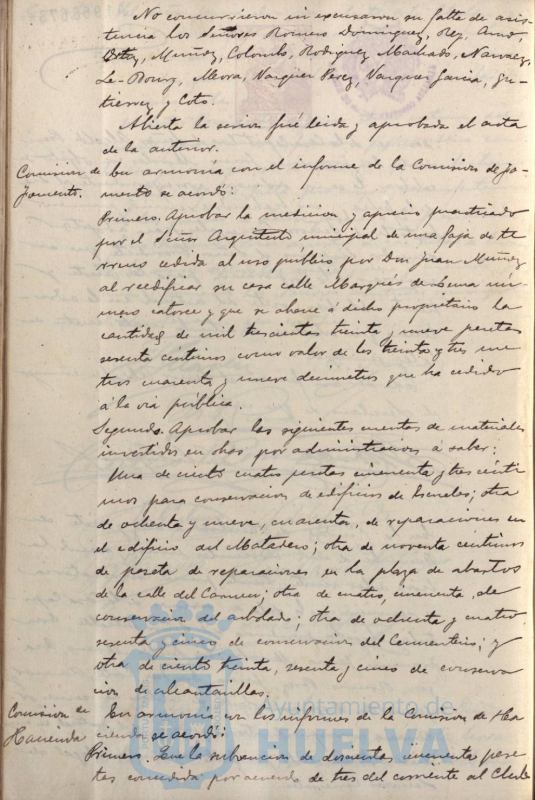 No concurrieron ni excusaron su falta de asis-
tencia los Señores Romero Dominguez, Rey,
Ortiz, Muñoz, Colombo, Rodriguez Machado, Narvaez,
Le-Bourg, Mora, Vazquez Perez, Vazquez Garcia, Gu-
tierrez y Coto.
Abierta la sesion fué leida y aprobada el acta
de la anterior.
Comision de
Fomento.
En armonia con el informe de la Comision de Fo-
mento se acordó:
Primero. Aprobar la medicion y aprecio practicado
por el Señor Arquitecto municipal de una faja de te
rreno cedida al uso público por Don Juan Muñoz
al reedificar su casa calle Marqués de nú-
mero catorce y que se abone á dicho propietario la
cantidad de mil trescientas treinta y nueve pesetas
sesenta centimos como valor de los treinta y tres me
tros cuarenta y nueve decimetros que ha cedido
á la via pública.
Segundo. Aprobar las siguientes cuentas de materiales
invertidos en obras por administracion á saber:
Una de ciento cuatro pesetas cincuenta y tres centi
mos para conservacion de edificios de Escuelas; otra
de ochenta y nueve, cuarenta, de reparaciones en
el edificio del Matadero; otra de noventa centimos
de peseta de reparaciones en la plaza de abastos
de la calle del Carmen; otra de cuatro, cincuenta, de
conservacion del arbolado; otra de ochenta y cuatro
sesenta y cinco de conservacion del Cementerio; y
otra de ciento treinta, sesenta y cinco de conserva
cion de alcantarillas.
Comision de
Hacienda
En armonia con los informes de la Comision de Ha
cienda se acordó:
Primero. Que la subvencion de doscientas cincuenta pese
tas concedida por acuerdo de tres del corriente al Club
Ayuntamiento de
HUELVA